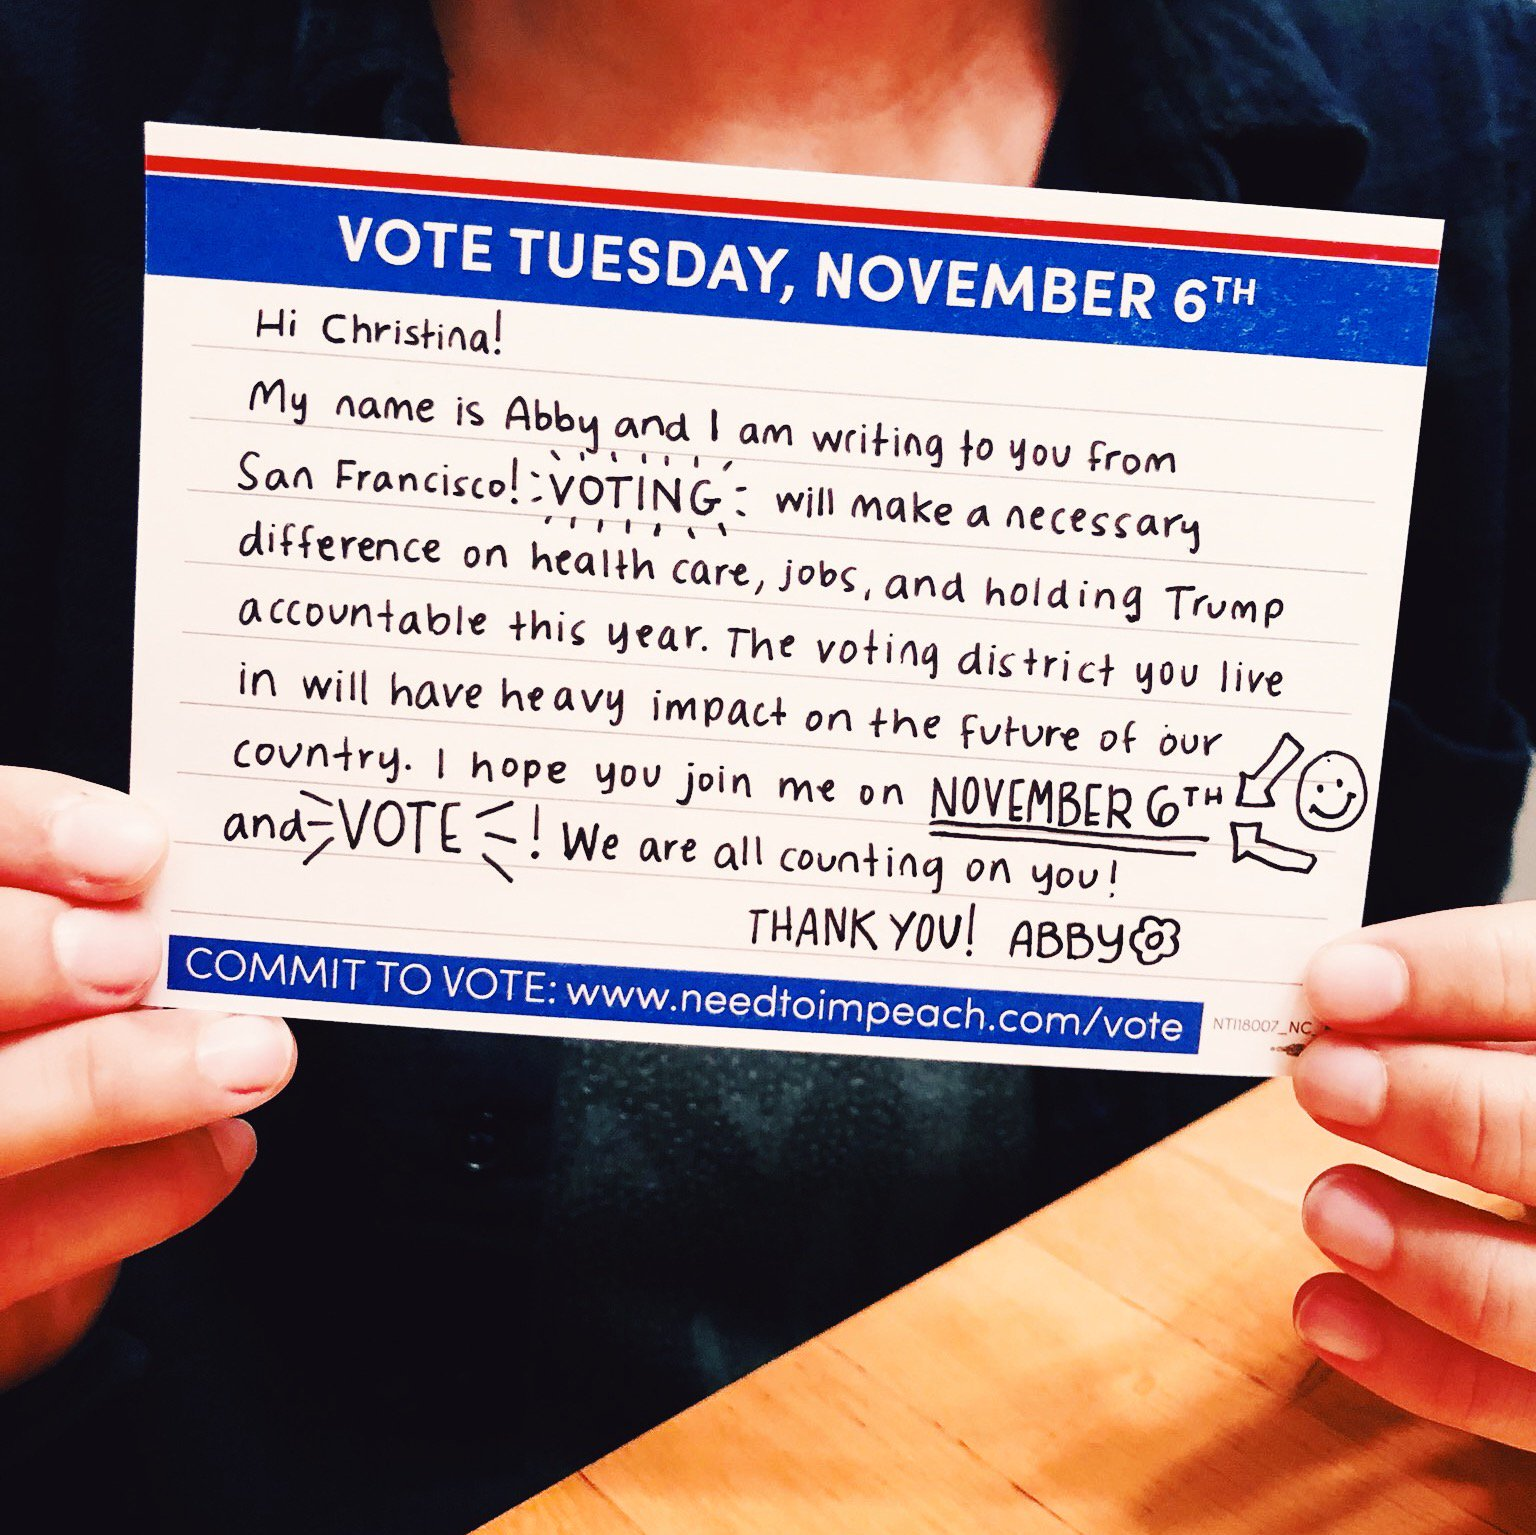 VOTE TUESDAY, NOVEMBER 6TH
Hi Christina!
My name is Abby and I am writing to you from
San Francisco! VOTING will make a necessary
difference on health care, jobs, and holding Trump
accountable this year. The voting district you live
in will have heavy impact on the future of our
country. I hope you join me on NOVEMBER 6TH
and VOTE! We are all counting on you!
THANK YOU! ABBY
COMMIT TO VOTE: www.needtoimpeach.com/vote
NTI18007_NC